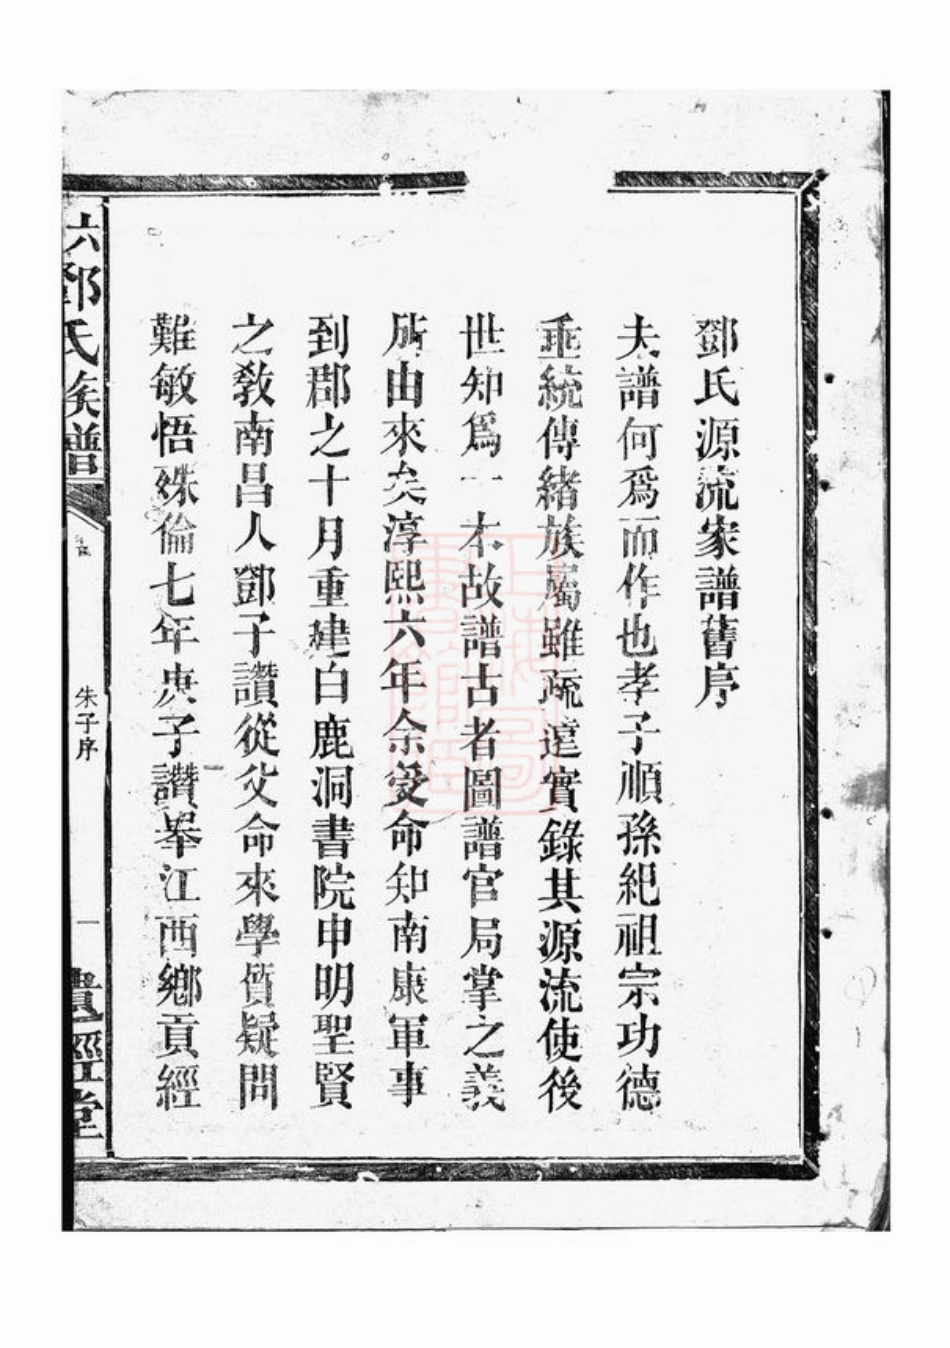 鄧氏源流家譜舊序
夫譜何爲而作也孝子順孫紀祖宗功德
垂統傳緒族屬雖疏遠實錄其源流使後
世知爲一本故譜古者圖譜官局掌之義
所由來矣淳熙六年余受命知南康軍事
到郡之十月重建白鹿洞書院申明聖賢
之敎南昌人鄧子讚從父命來學質疑問
難敏悟殊倫七年庚子讚舉江西鄉貢經
六鄧氏族譜
朱子序
一
遺經堂